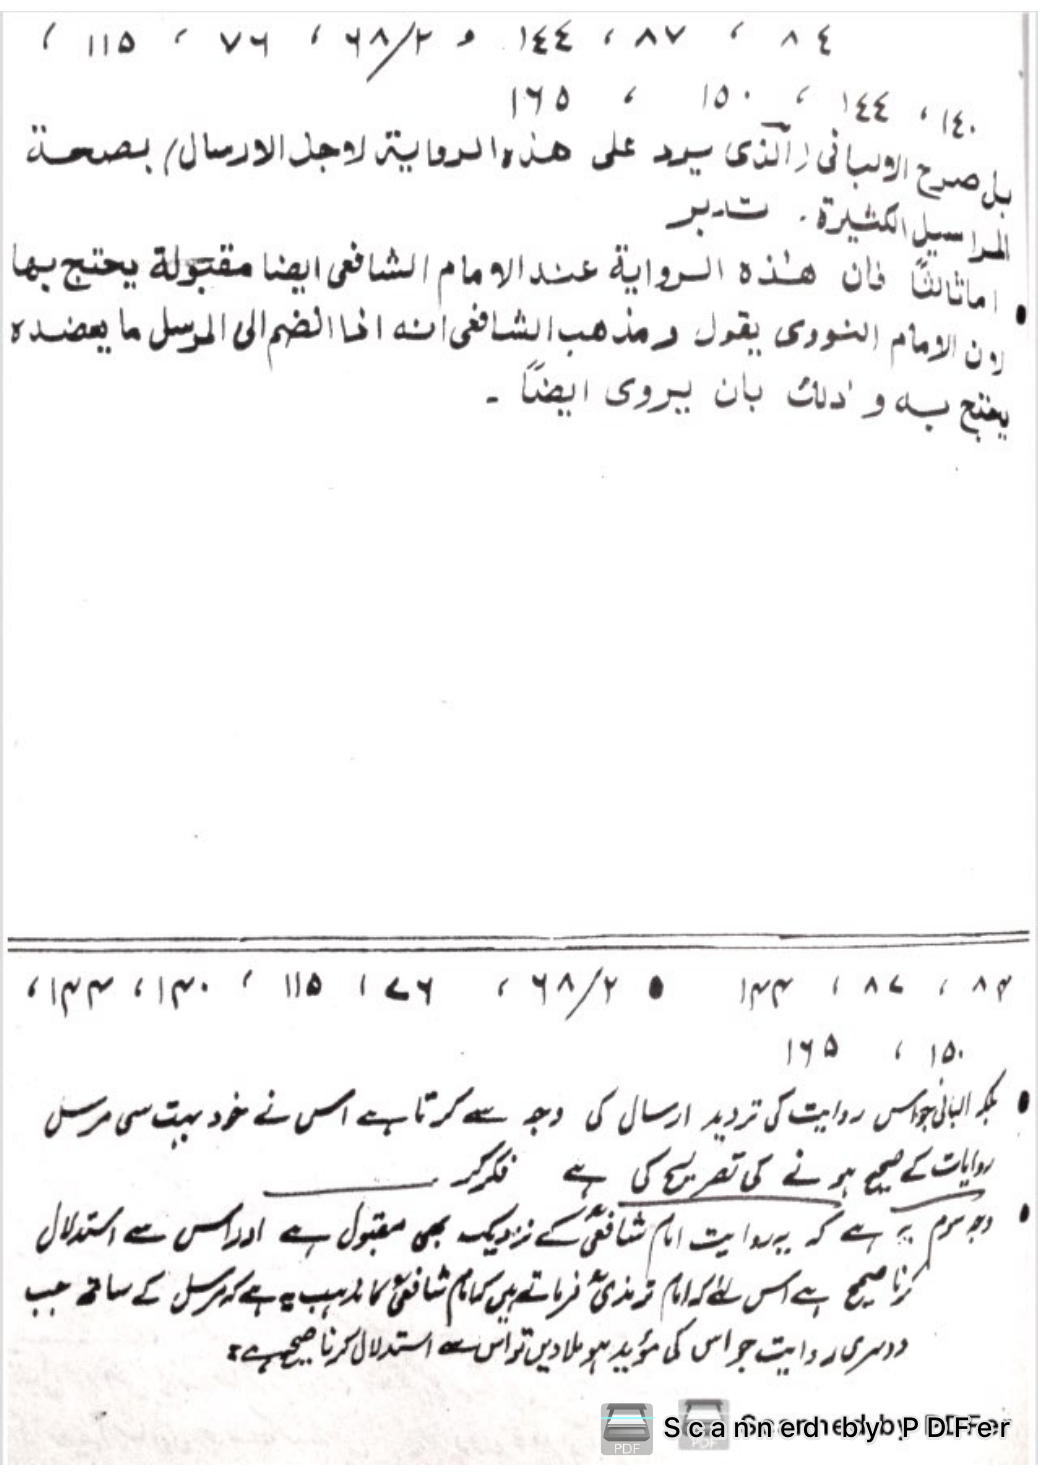 ٨٤ ، ٨٧ ، ١٤٤ و ٦٨/٢ ، ٧٦ ، ١١٥ ،
١٤٠ ، ١٤٤ ، ١٥٠ ، ١٦٥
بل صرح الالبانی (الذی یرد علی هذه الروایة لاجل الارسال) بصحة
المراسیل الکثیرة . تدبر
• اما ثالثًا فان هذه الروایة عند الامام الشافعی ایضا مقبولة یحتج بها
لان الامام النووی یقول و مذهب الشافعی انه اذا انضم الی المرسل ما یعضده
یحتج به و ذلک بان یروی ایضًا ۔
۸۴ ، ۸۷ ، ۱۴۴ • ۶۸/۲ ، ۷۶ ، ۱۱۵ ، ۱۴۰ ، ۱۴۴ ،
۱۵۰ ، ۱۶۵
• بلکہ البانی جو اس روایت کی تردید ارسال کی وجہ سے کرتا ہے اس نے خود بہت سی مرسل
روایات کے صحیح ہونے کی تصریح کی ہے فکر کر
• وجہ سوم یہ ہے کہ یہ روایت امام شافعیؒ کے نزدیک بھی مقبول ہے اور اس سے استدلال
کرنا صحیح ہے اس لئے کہ امام ترمذیؒ فرماتے ہیں کہ امام شافعیؒ کا مذہب یہ ہے کہ مرسل کے ساتھ جب
دوسری روایت جو اس کی مؤید ہو ملا دیں تو اس سے استدلال کرنا صحیح ہے :
Scanned by PDFer